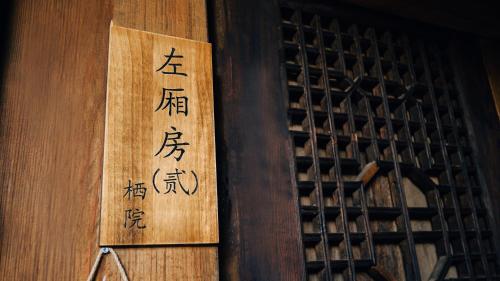 左厢房(贰)
栖院